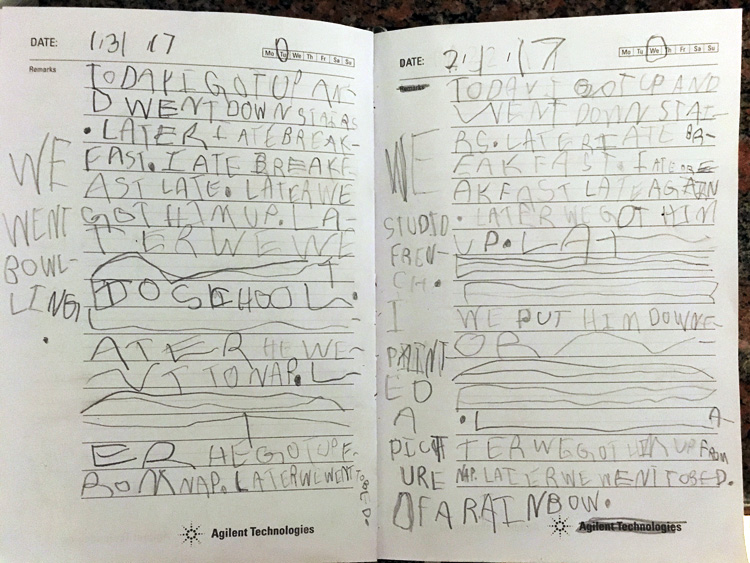 DATE: 1/31/17
Mo Tu We Th Fr Sa Su
Remarks
TODAY I GOT UP AN-
D WENT DOWN STAIRS
. LATER I ATE BREAK-
FAST. I ATE BREAKF-
AST LATE. LATER WE
GOT HIM UP. LA-
TER WE WE
DO SCHOOL.
ATER HE WE-
NT TO NAP. L
ER HE GOT UP F-
ROM NAP. LATER WE WENT TO BED.
WE
WENT
BOWL-
LING
.
Agilent Technologies
DATE: 2/1/17
Mo Tu We Th Fr Sa Su
Remarks
TODAY I GOT UP AND
WENT DOWN STAI-
RS. LATER I ATE BR-
EAKFAST. I ATE BRE
AKFAST LATE AGAIN
. LATER WE GOT HIM
UP. LAT
WE PUT HIM DOWN F-
OR
. L A-
TER WE GOT HIM UP FROM
NAP. LATER WE WENT TO BED.
WE
STUDID
FREN-
CH.
I
PAINT
ED
A
PICT
URE
OF A RAINBOW.
Agilent Technologies